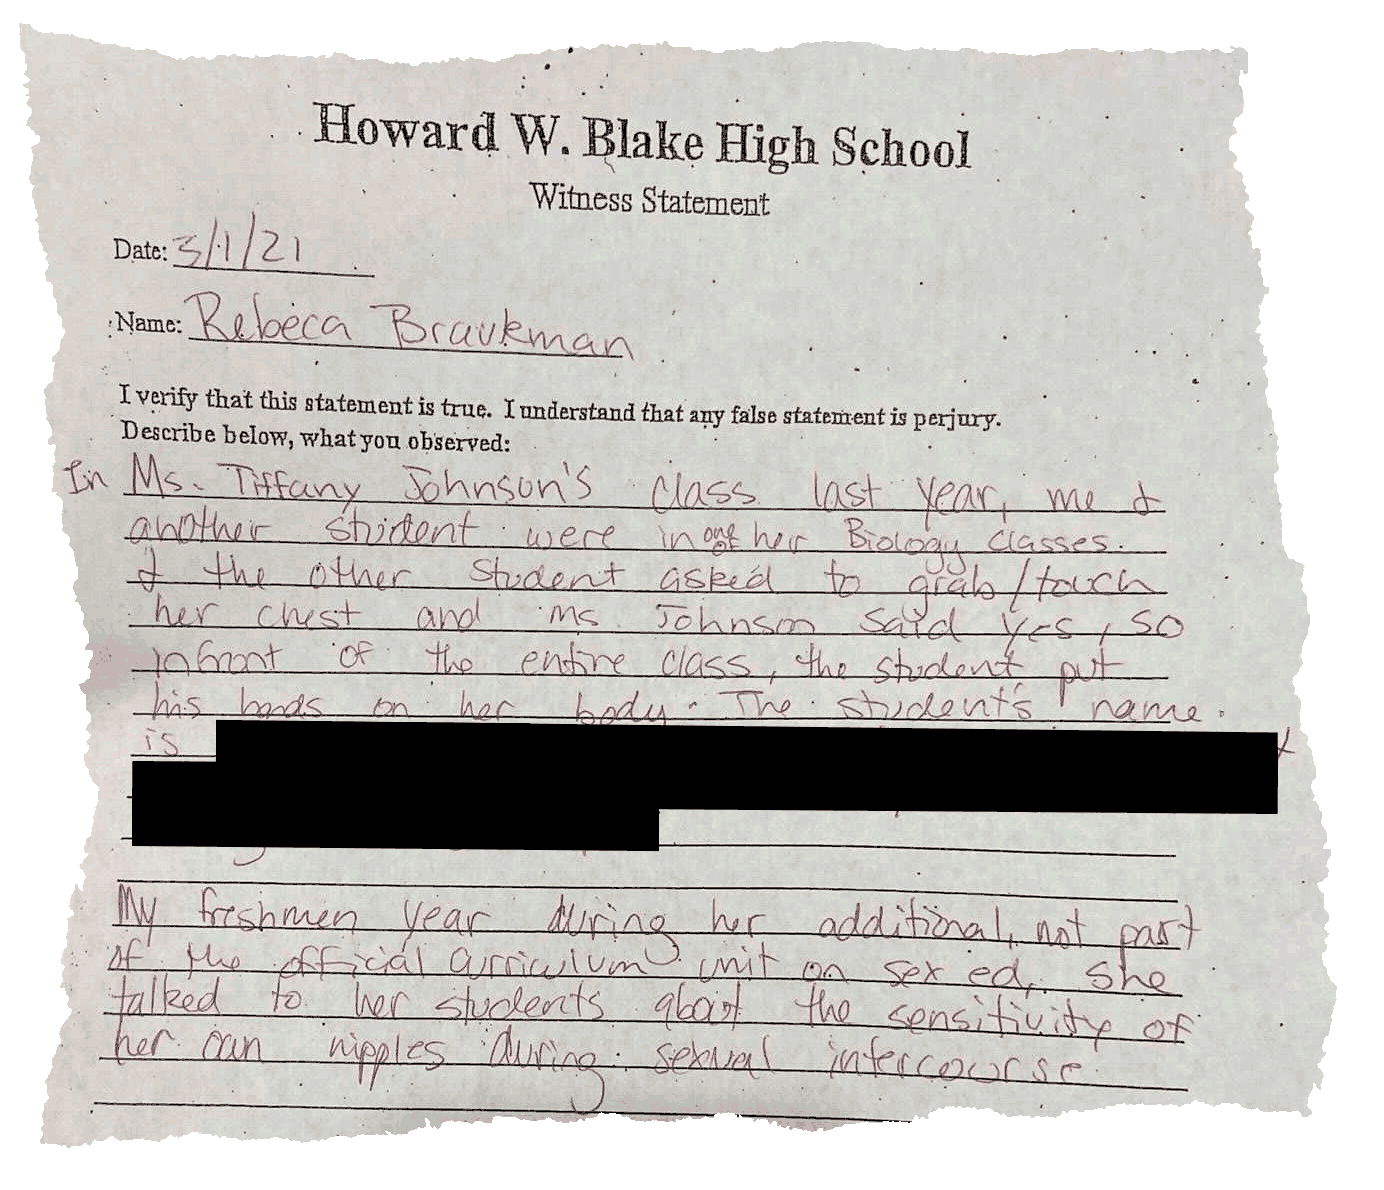 Howard W. Blake High School
Witness Statement
Date: 3/1/21
Name: Rebeca Braukman
I verify that this statement is true. I understand that any false statement is perjury.
Describe below, what you observed:
In Ms. Tiffany Johnson's class last year, me &
another student were in one of her Biology classes.
& the other student asked to grab/touch
her chest and Ms. Johnson said yes, so
infront of the entire class, the student put
his hands on her body. The student's name
is
My freshmen year during her additional, not part
of the official curriculum unit on sex ed, she
talked to her students about the sensitivity of
her own nipples during sexual intercourse